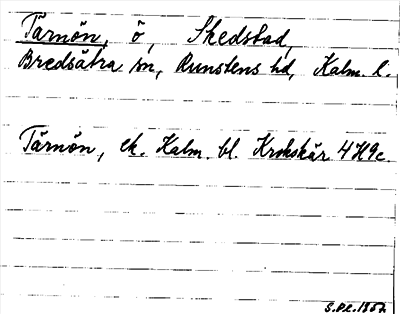 Tärnön, ö, Skedstad,
Bredsätra sn, Runstens hd, Kalm. l.
Tärnön, ek. Kalm. bl. Krokskär 4H9c.